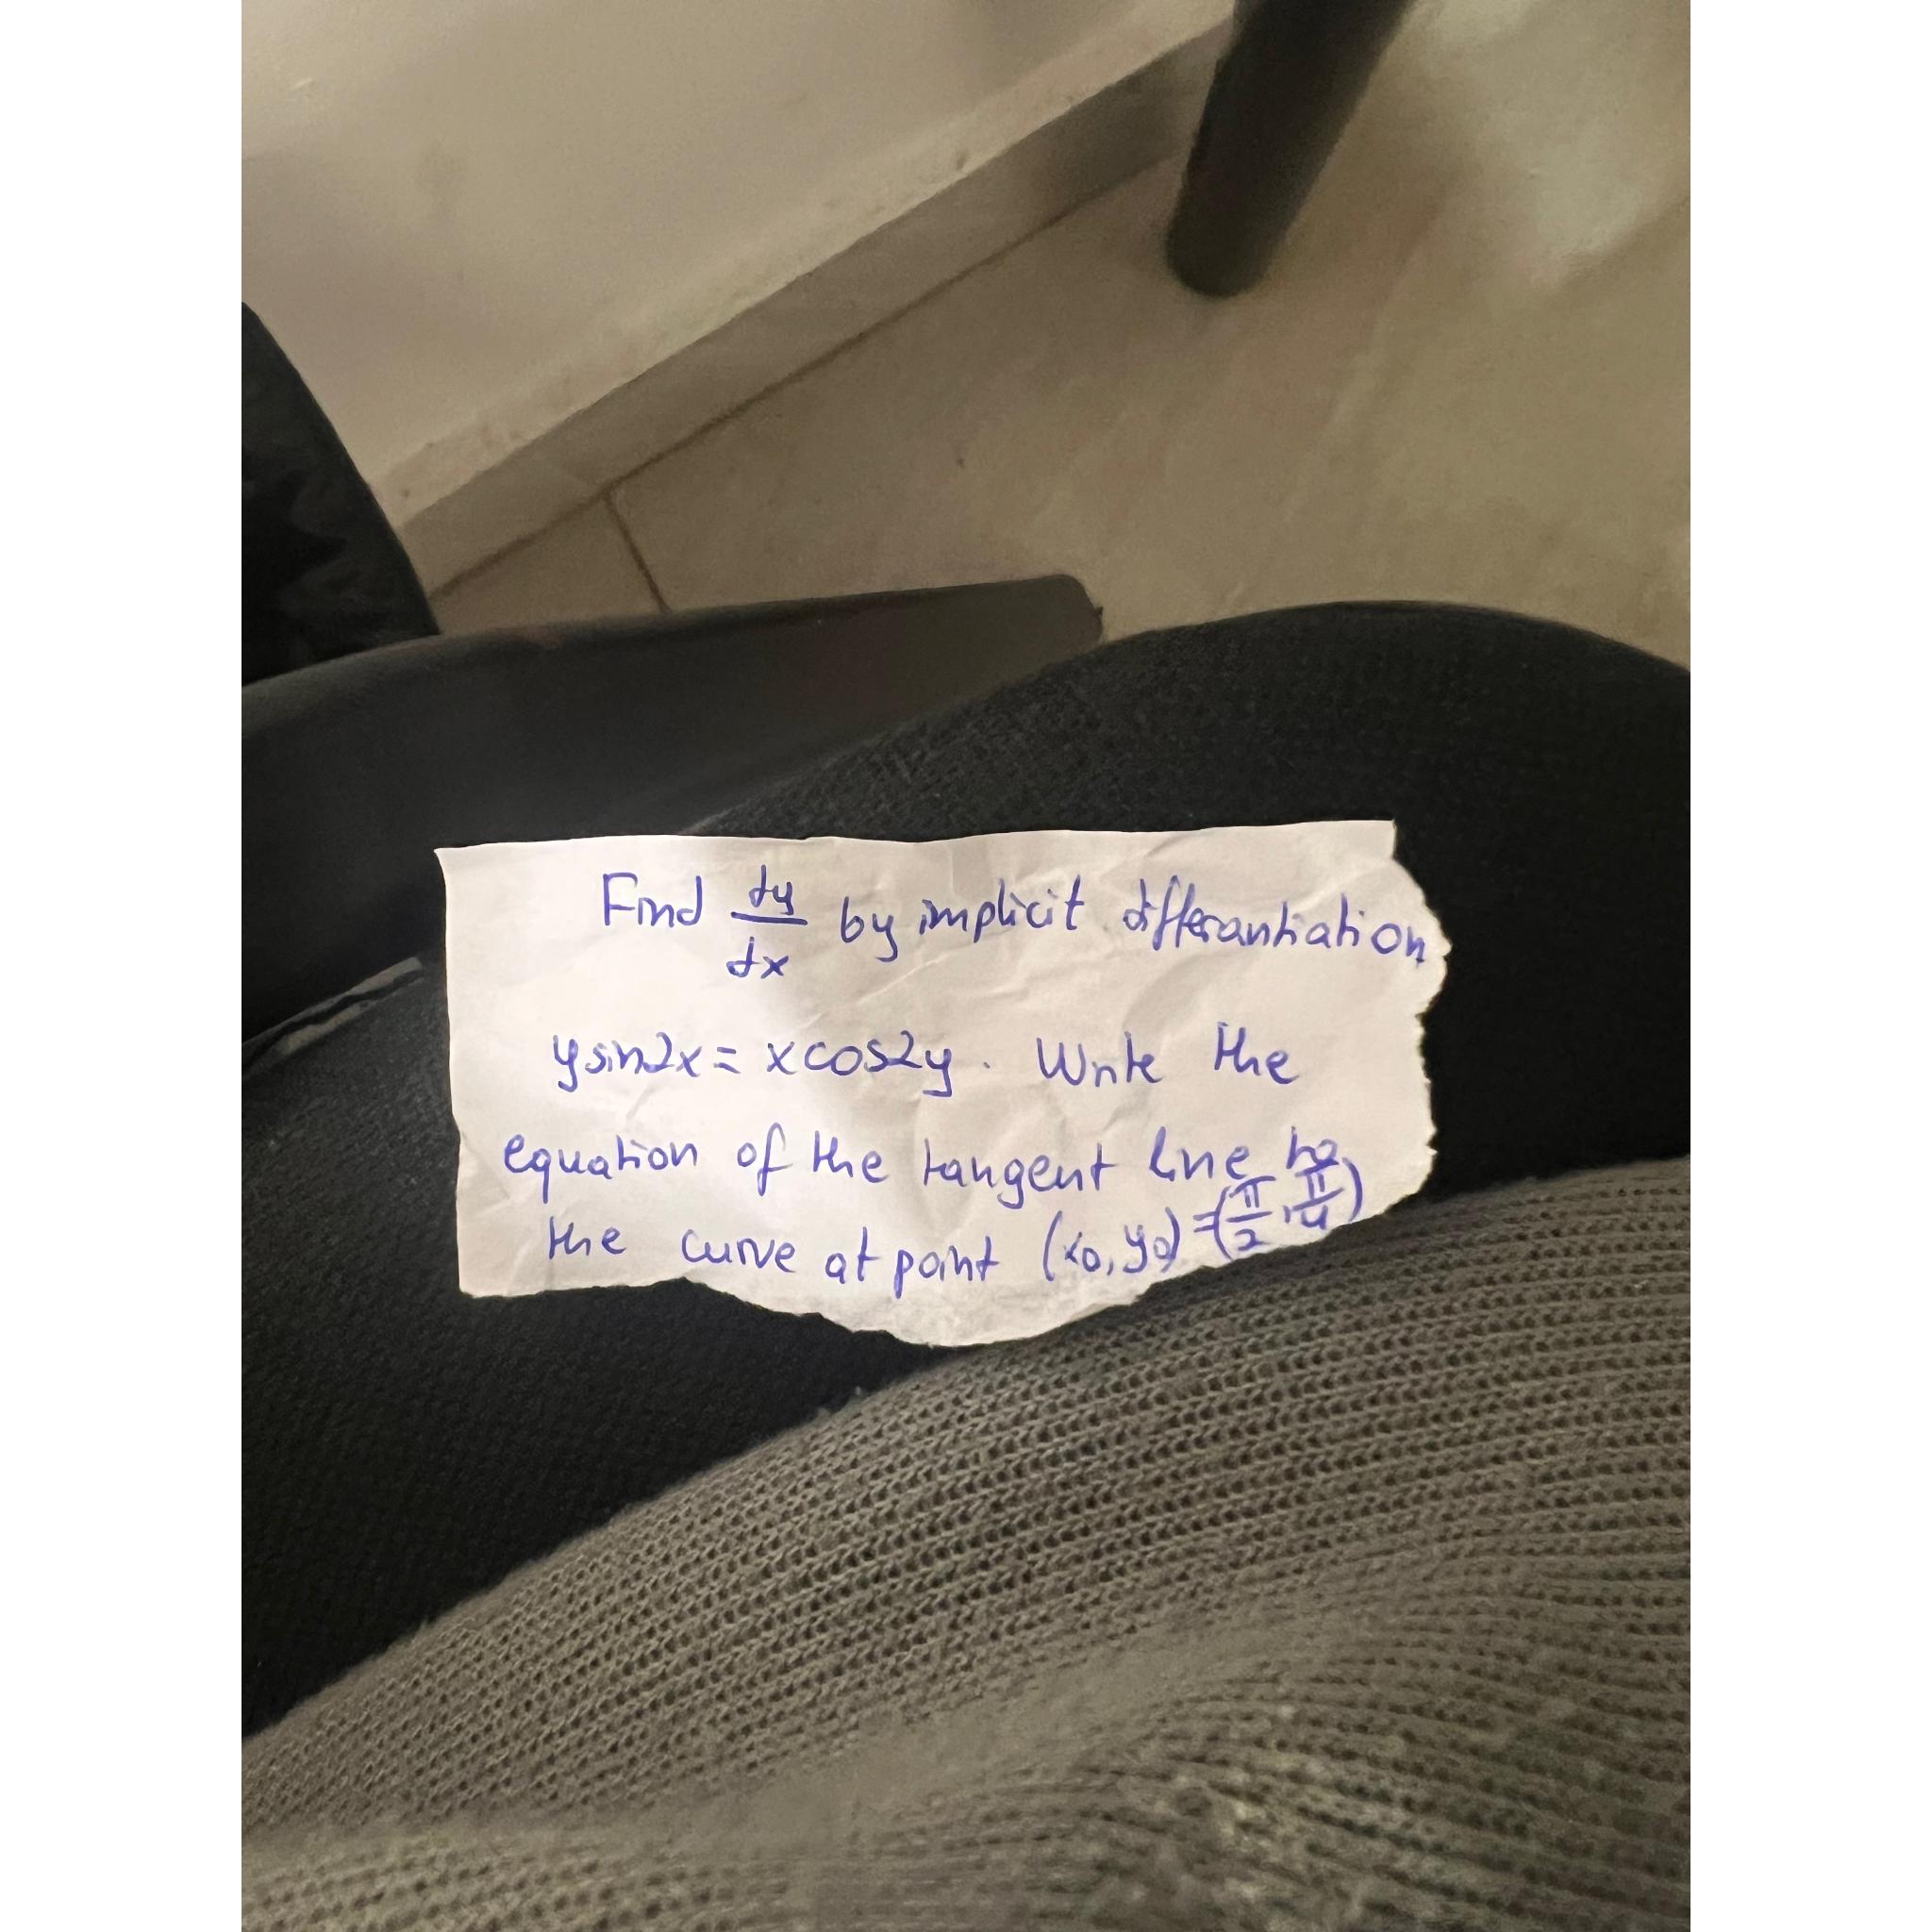 Find dy/dx by implicit differantiation
ysin2x = xcos2y. Write the
equation of the tangent line to
the curve at point (x0, y0) = (π/2, π/4)